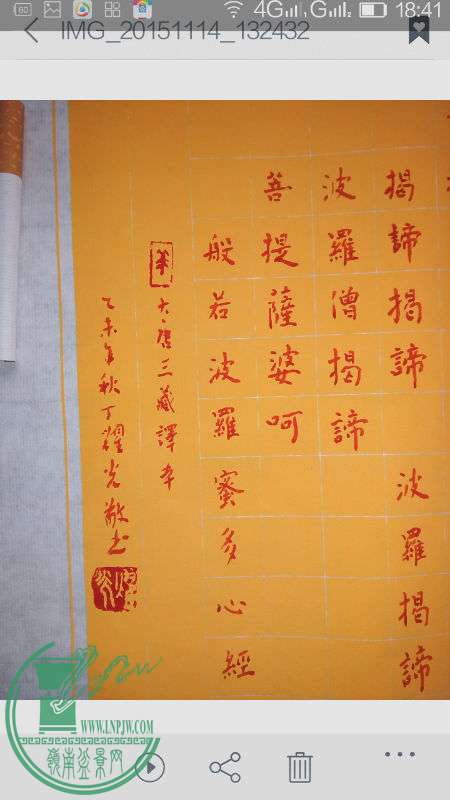 60 4G G 18:41
IMG_20151114_132432
揭諦揭諦 波羅揭諦
波羅僧揭諦
菩提薩婆呵
般若波羅蜜多心經
大唐三藏譯本
乙未年秋丁耀光敬书
WWW.LNPJW.COM
嶺南盆景网